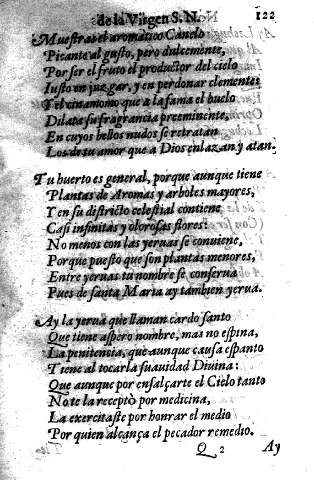 de la Virgen S. N. 122
Muestras el aromatico Canelo
Picante al gusto, pero dulcemente,
Por ser el fruto el productor del cielo
Iusto en juzgar, y en perdonar clemente:
Y el cinamomo que a la fama el buelo
Dilata su fragrancia preeminente,
En cuyos bellos nudos se retratan
Los de tu amor que a Dios enlazan y atan.
Tu huerto es general, porque aunque tiene
Plantas de Aromas y arboles mayores,
Y en su districto celestial contiene
Casi infinitas y olorosas flores:
No menos con las yeruas se conuiene,
Porque puesto que son plantas menores,
Entre yeruas tu nombre se conserua
Pues de santa Maria ay tambien yerua.
Ay la yerua que llaman cardo santo
Que tiene aspero nombre, mas no espina,
La penitencia, que aunque causa espanto
Tiene al tocarla suauidad Diuina:
Que aunque por ensalçarte el Cielo tanto
No te la receptò por medicina,
La exercitaste por honrar el medio
Por quien alcança el pecador remedio.
Q 2 Ay